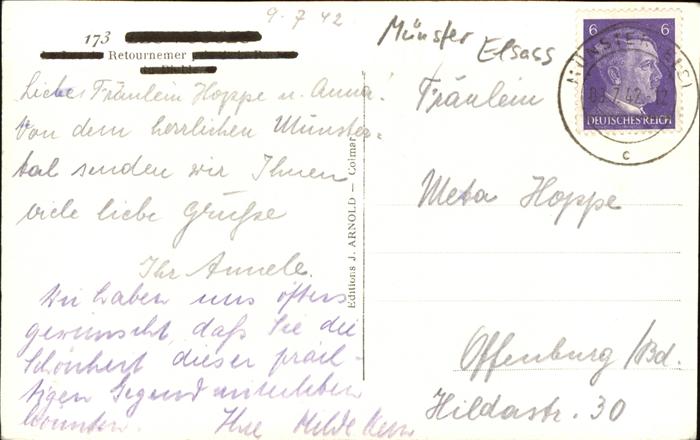 9.7.42
Münster Elsass
173
Retournemer
Liebes Fräulein Hoppe u. Anna!
Von dem herrlichen Münster-
tal senden wir Ihnen
viele liebe Grüße
Ihr Annele.
Wir haben uns öfters
gewünscht, daß Sie die
Schönheit dieser präch-
tigen Gegend miterleben
könnten. Ihre Hilde
Editions J. ARNOLD — Colmar
6 6
DEUTSCHES REICH
MÜNSTER (ELS)
09.7.42.-12
c
Fräulein
Meta Hoppe
Offenburg/Bd.
Hildastr. 30